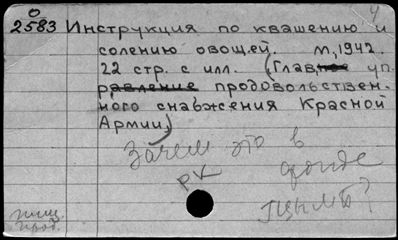 0
2583 Инструкция по квашению и
солению овощей. М, 1942.
22 стр. с илл. (Глав,ное уп
равление продовольствен-
ного снабжения Красной
Армии)
Зачем это в
фонде
РК
ГЦНМБ?
пищ.
прод.
4